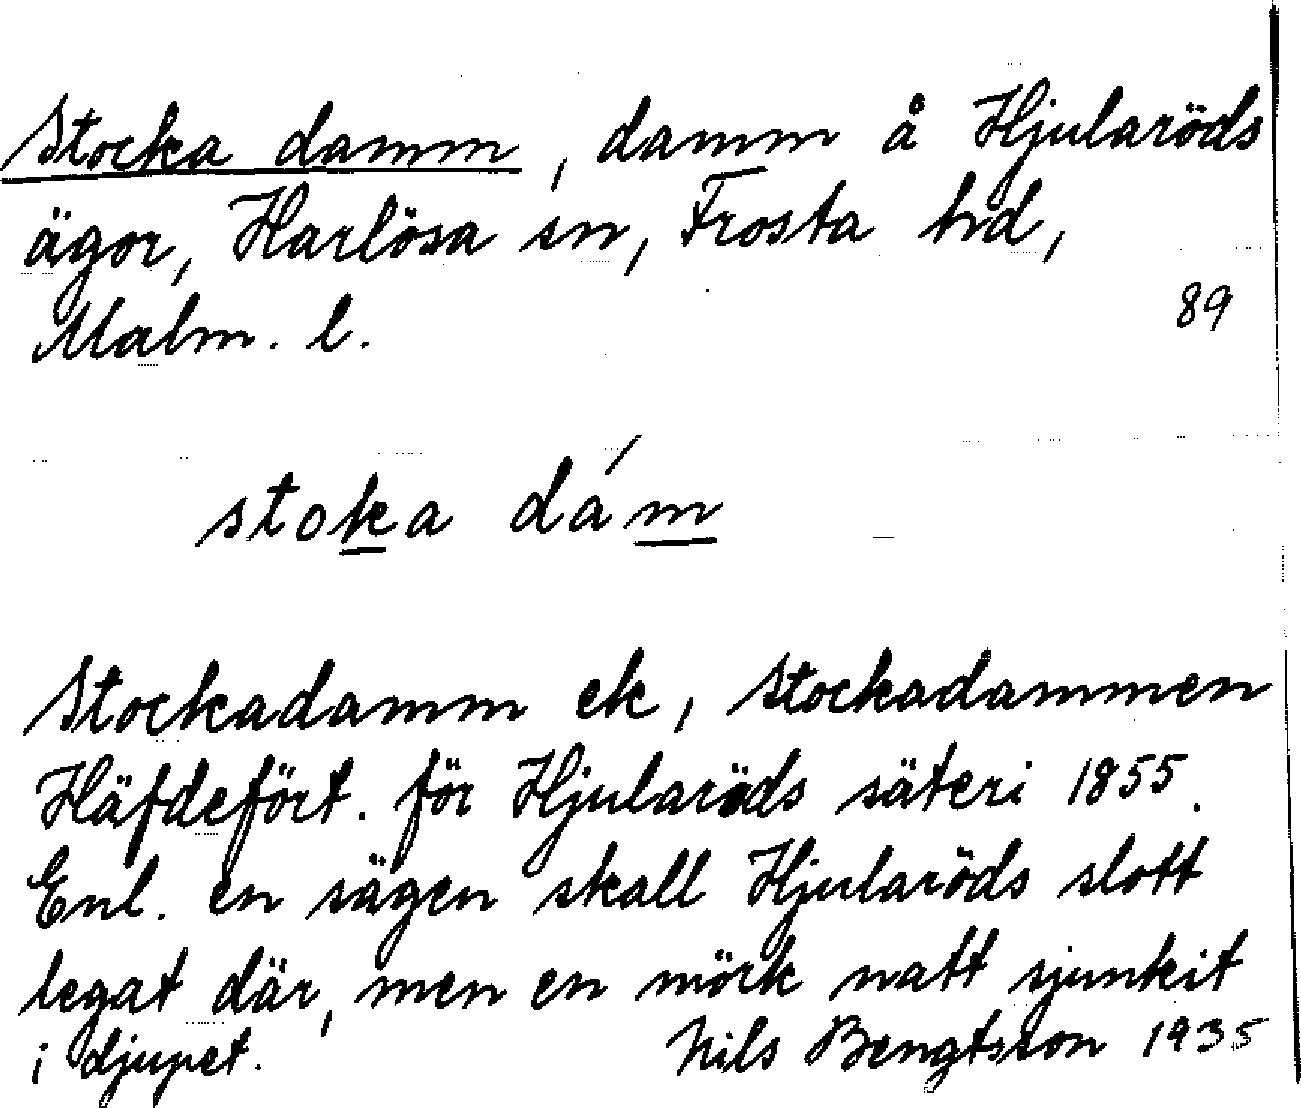 Stocka damm, damm å Hjularöds
ägor, Harlösa sn, Frosta hd,
Malm. l.
89
stoka dám
Stockadamm ek, Stockadammen
Häfdefört. för Hjularöds säteri 1855.
Enl. en sägen skall Hjularöds slott
legat där, men en mörk natt sjunkit
i djupet.
Nils Bengtsson 1935